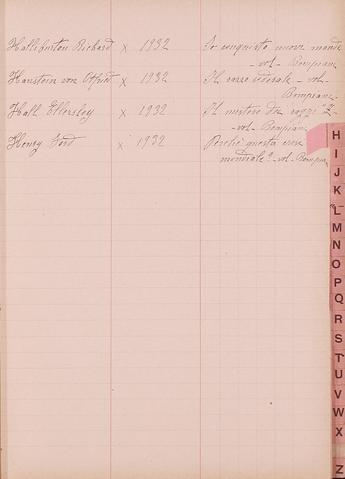 Halliburton Richard x 1932 Io conquisto nuove mondi
- vol - Bompiani
Hanstein von Otfrid x 1932 Il raggio - vol -
Bompiani
Hall Ellersley x 1932 Il mistero dei raggi "Z"
- vol - Bompiani
Henry Ford x 1932 Perché questa crisi
mondiale? - vol - Bompiani
H
I
J
K
L
M
N
O
P
Q
R
S
T
U
V
W
X
Z